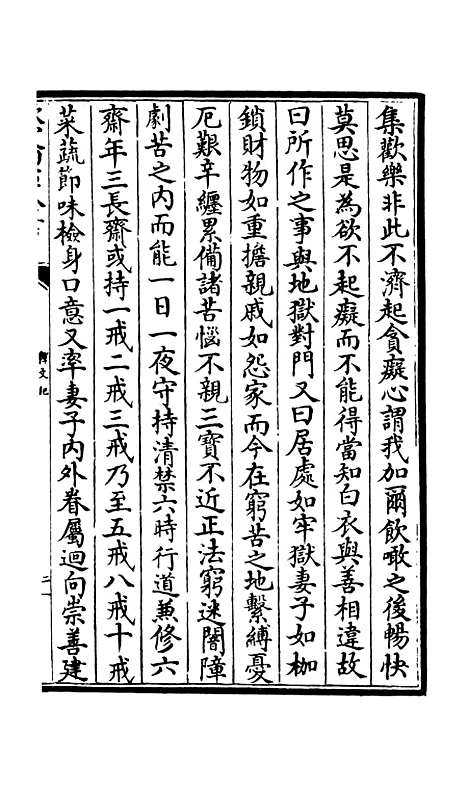 集歡樂非此不濟起貪癡心謂我加爾飲噉之後暢快
莫思是為欲不起癡而不能得當知白衣與善相違故
曰所作之事與地獄對門又曰居處如牢獄妻子如枷
鎖財物如重擔親戚如怨家而今在窮苦之地繫縛憂
厄艱辛纏累備諸苦惱不親三寶不近正法窮迷闇障
劇苦之內而能一日一夜守持清禁六時行道兼修六
齋年三長齋或持一戒二戒三戒乃至五戒八戒十戒
菜蔬節味檢身口意又率妻子內外眷屬迴向崇善建
釋文紀